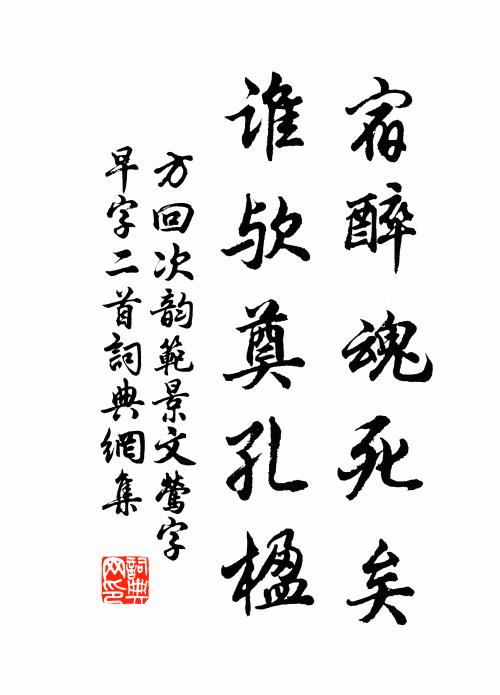 宿醉魂死矣
谁欤奠孔楹
方回次韵範景文鶯字
早字二首詞典網集
詞典网印